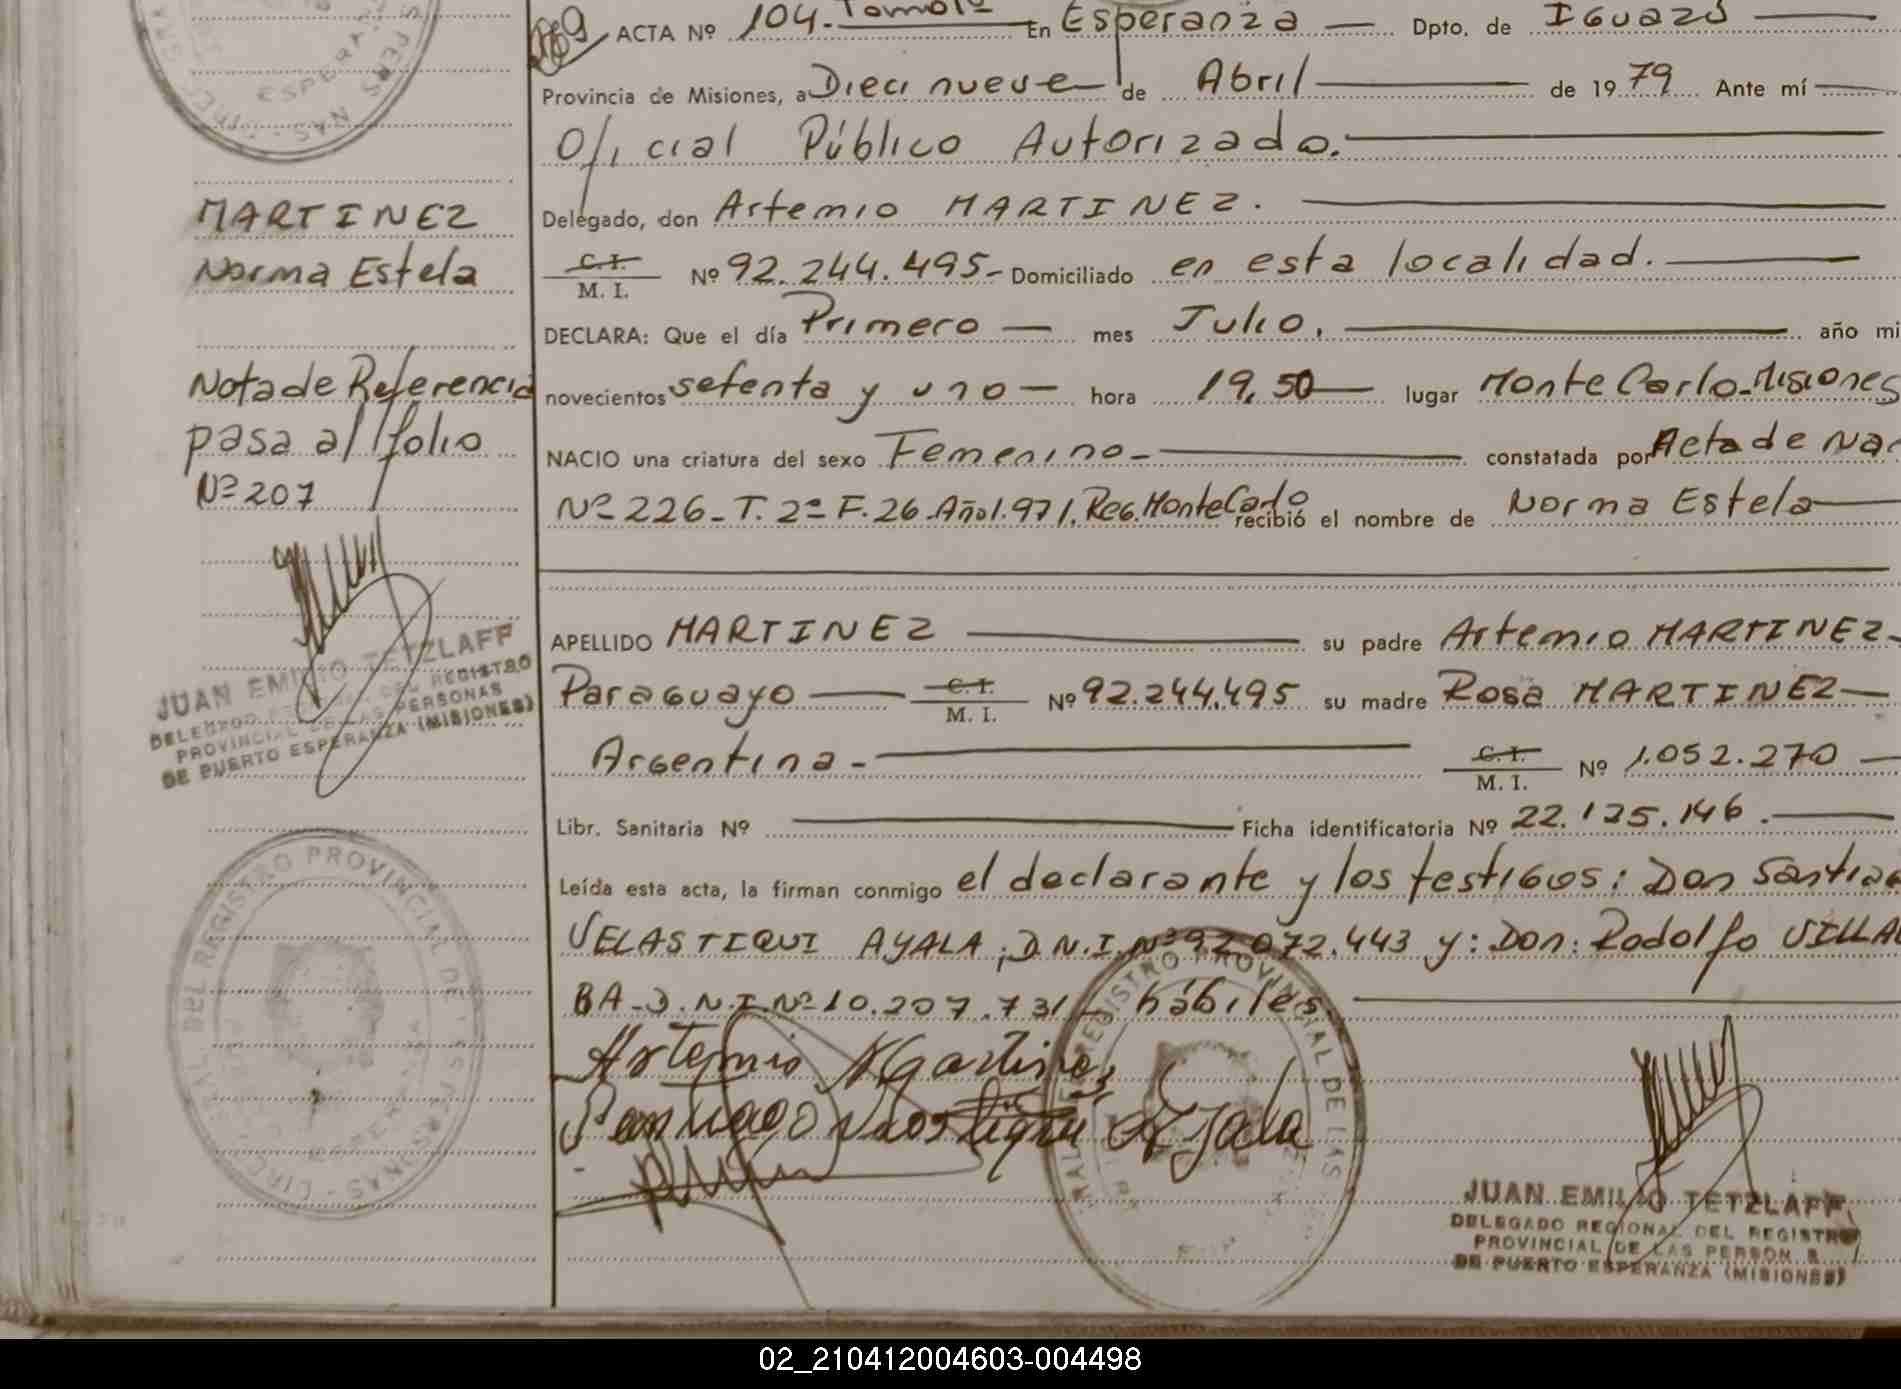 ACTA Nº 104. Tomo 1º En Esperanza Dpto. de Iguazú
Provincia de Misiones, a Dieci nueve de Abril de 1979 Ante mí
Oficial Público Autorizado.
Delegado, don Artemio MARTINEZ.
C.I. M. I. Nº 92.244.495- Domiciliado en esta localidad.
DECLARA: Que el día Primero mes Julio, año mi
novecientos setenta y uno hora 19,50 lugar Monte Carlo-Misiones
NACIO una criatura del sexo Femenino- constatada por Acta de Nac
Nº 226- T. 2º F. 26. Año 1.971. Reg. Monte Carlo recibió el nombre de Norma Estela
APELLIDO MARTINEZ su padre Artemio MARTINEZ
Paraguayo C.I. M. I. Nº 92.244.495 su madre Rosa MARTINEZ
Argentina- C.I. M. I. Nº 1.052.270
Libr. Sanitaria Nº Ficha identificatoria Nº 22.125.146.
Leída esta acta, la firman conmigo el declarante y los testigos: Don Santiago
VELASTIQUI AYALA; D.N.I. Nº 92.072.443 y: Don: Rodolfo VILLAL
BA-D.N.I. Nº 10.207.731- hábiles.
Artemio Martinez
Santiago Velastiqui Ayala
JUAN EMILIO TETZLAFF
DELEGADO REGIONAL DEL REGISTRO
PROVINCIAL DE LAS PERSONAS
DE PUERTO ESPERANZA (MISIONES)
MARTINEZ
Norma Estela
Nota de Referencia
pasa al folio
Nº 207
JUAN EMILIO TETZLAFF
DELEGADO REGIONAL DEL REGISTRO
PROVINCIAL DE LAS PERSONAS
DE PUERTO ESPERANZA (MISIONES)
DEL REGISTRO PROVINCIAL DE LAS PERSONAS
REGISTRO PROVINCIAL DE LAS
02_210412004603-004498